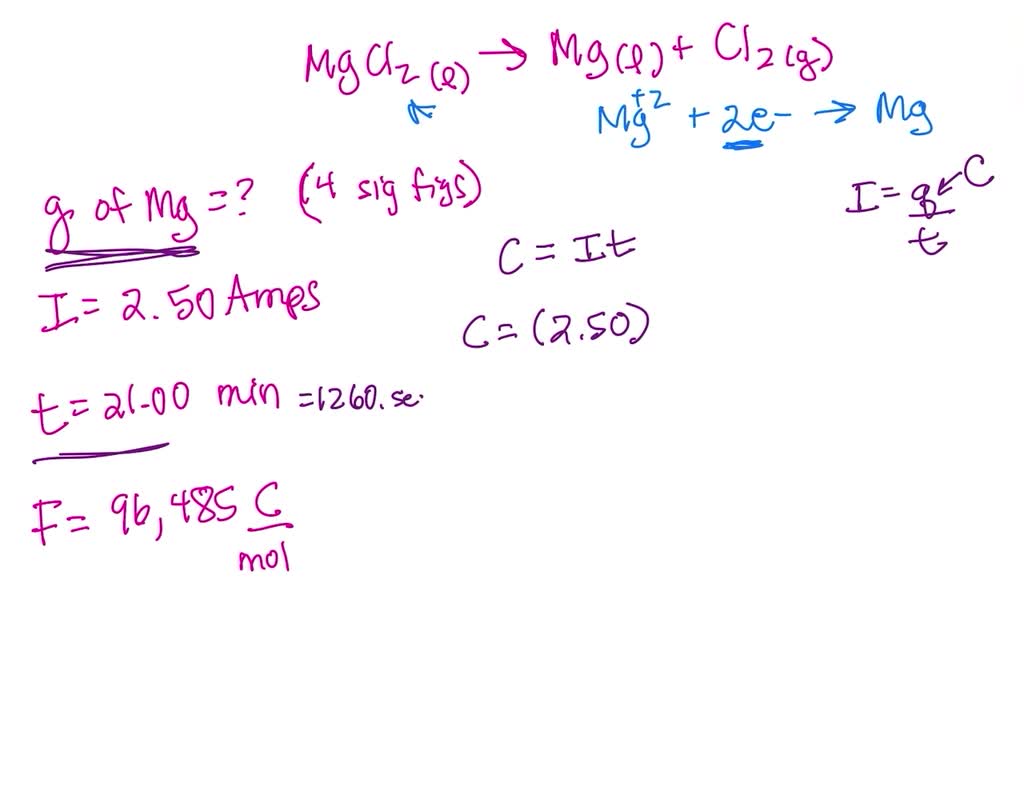 MgCl₂(l) → Mg(l) + Cl₂(g)
Mg⁺² + 2e- → Mg
g of Mg = ? (4 sig figs)
I = q/t ← C
C = It
I = 2.50 Amps
C = (2.50)
t = 21.00 min = 1260. se.
F = 96,485 C/mol